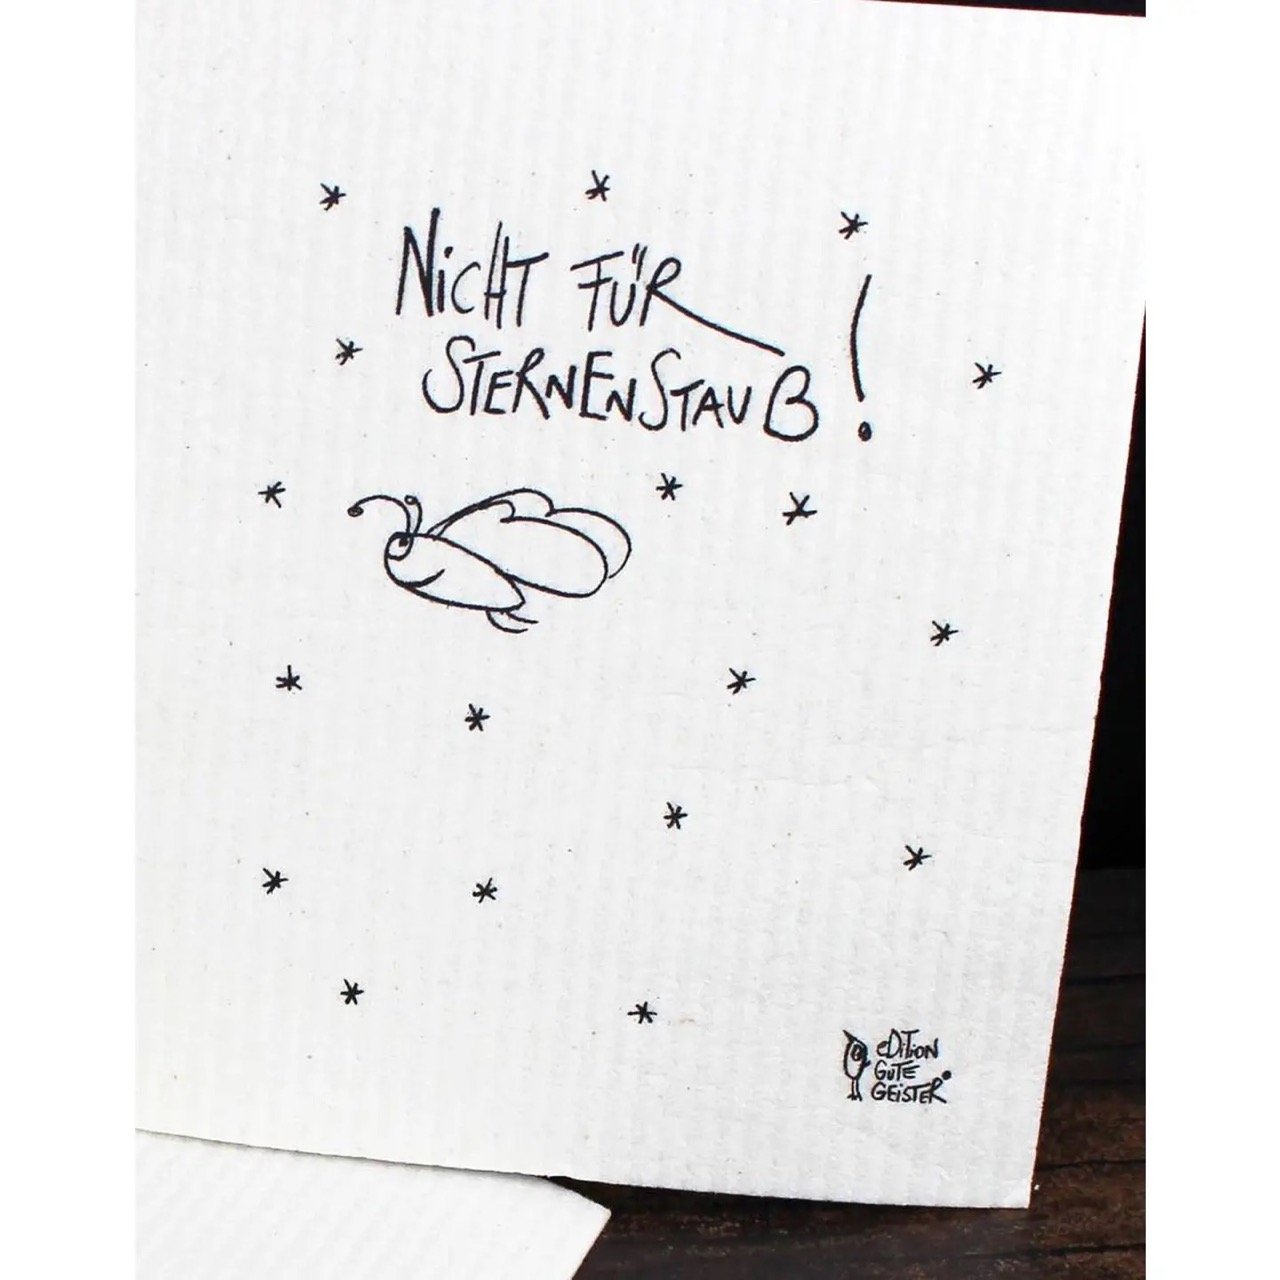 NiCHT FÜR
STERNENSTAUB!
eDiTion
GuTE
GEiSTER